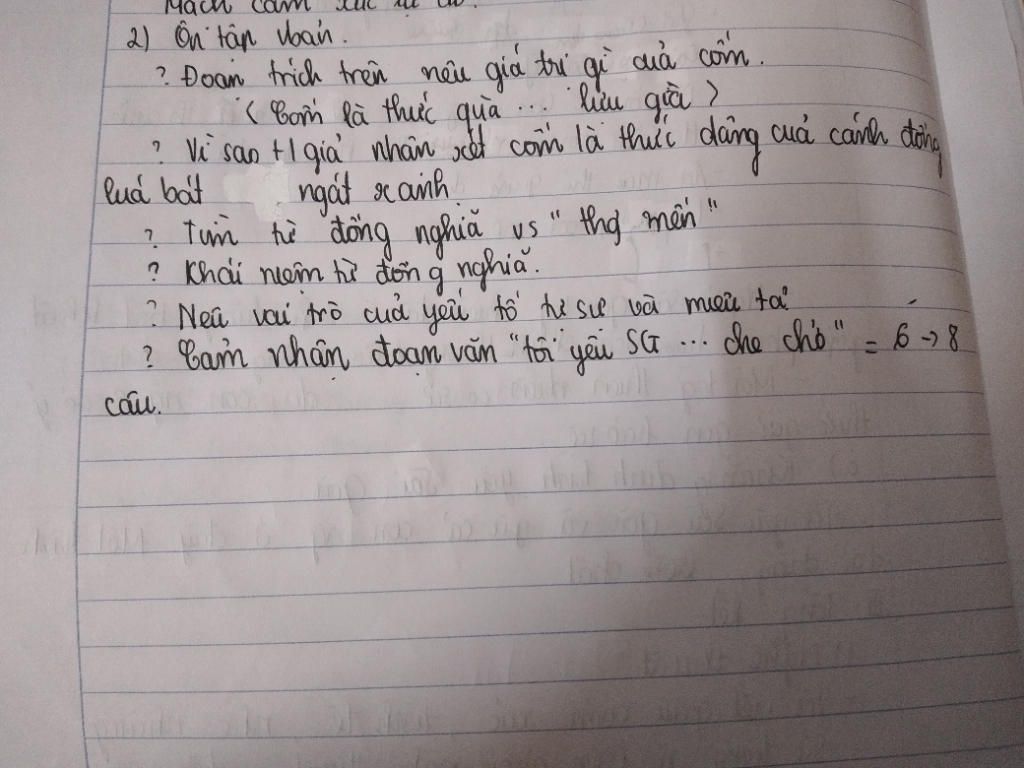 Mạch cảm xúc
2) Ôn tập vbản.
? Đoạn trích trên nêu giá trị gì của cốm.
< Cốm là thức quà ... lưu giữ >
? Vì sao t/giả nhận xét cốm là thức dâng của cánh đồng
lúa bát ngát xanh
? Tìm từ đồng nghĩa vs "thg mến"
? Khái niệm từ đồng nghĩa.
? Nêu vai trò của yếu tố tự sự và miêu tả
? Cảm nhận đoạn văn "tôi yêu SG ... che chở" = 6 -> 8
câu.